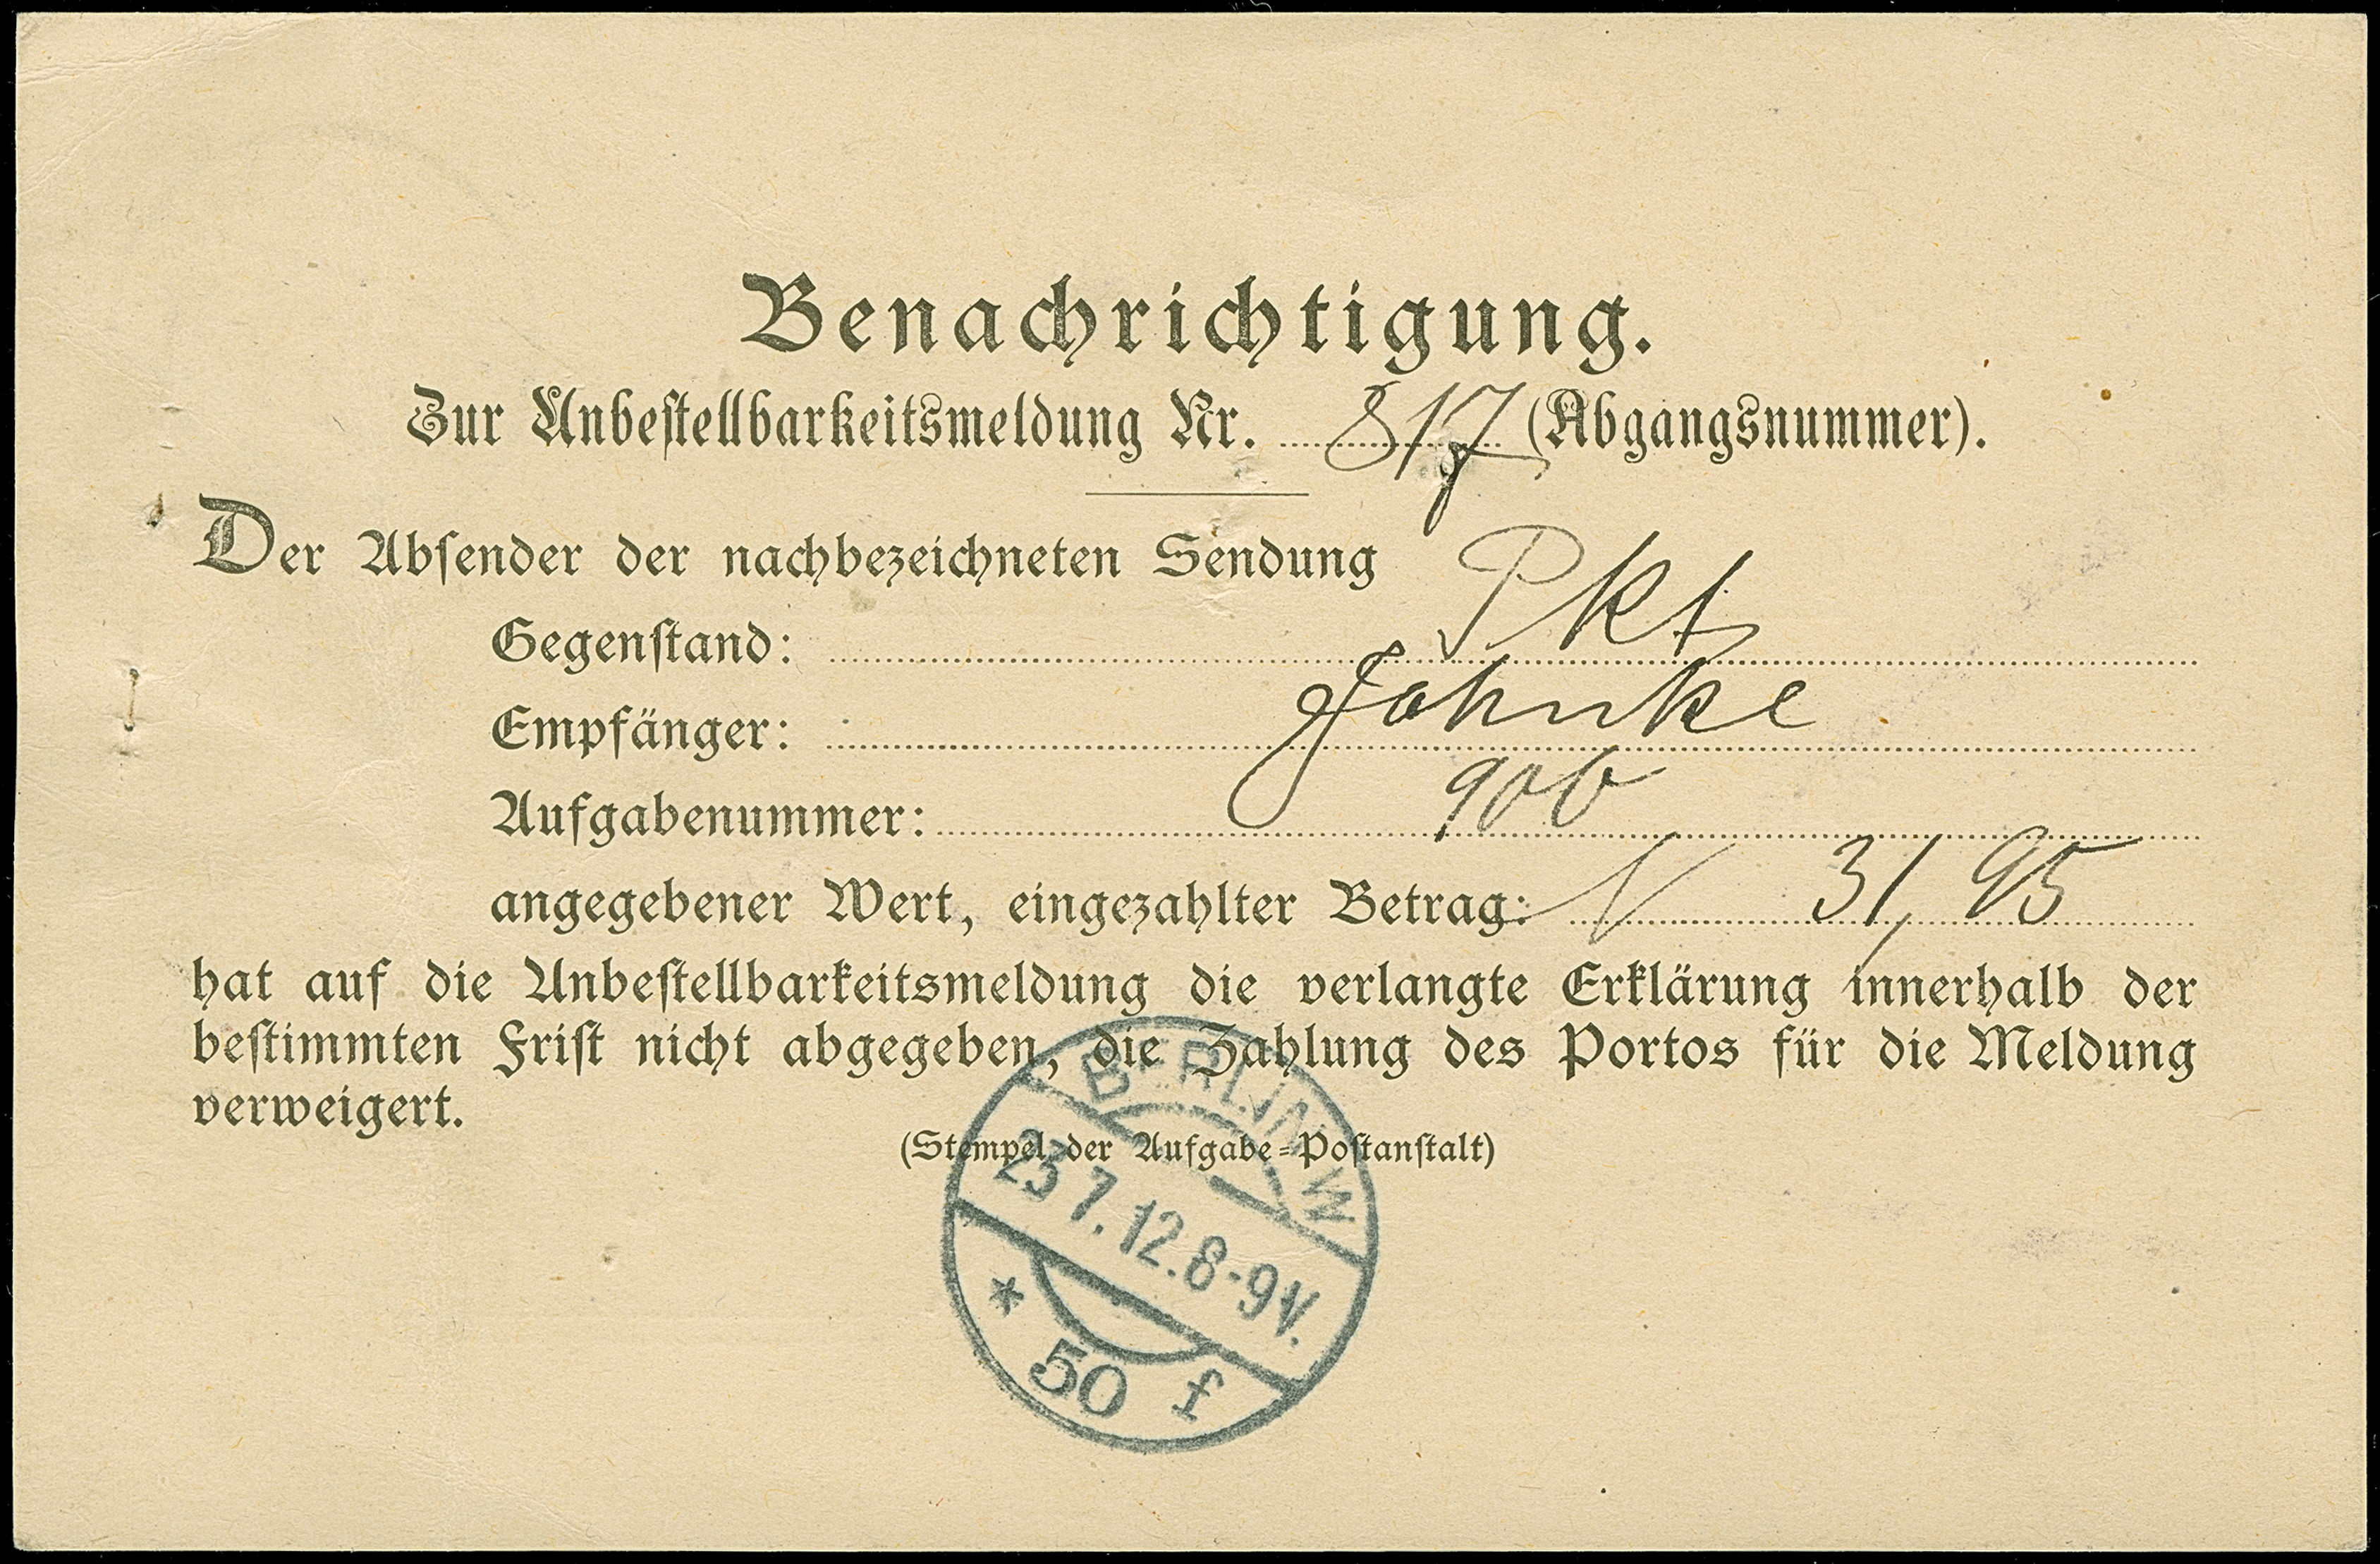 Benachrichtigung.
Zur Unbestellbarkeitsmeldung Nr. 817 (Abgangsnummer).
Der Absender der nachbezeichneten Sendung
Gegenstand: Pkt
Empfänger: Johnke
Aufgabenummer: 906
angegebener Wert, eingezahlter Betrag: N 31,95
hat auf die Unbestellbarkeitsmeldung die verlangte Erklärung innerhalb der
bestimmten Frist nicht abgegeben, die Zahlung des Portos für die Meldung
verweigert.
(Stempel der Aufgabe-Postanstalt)
BERLIN W
23 7.12.8-9V.
* 50 f